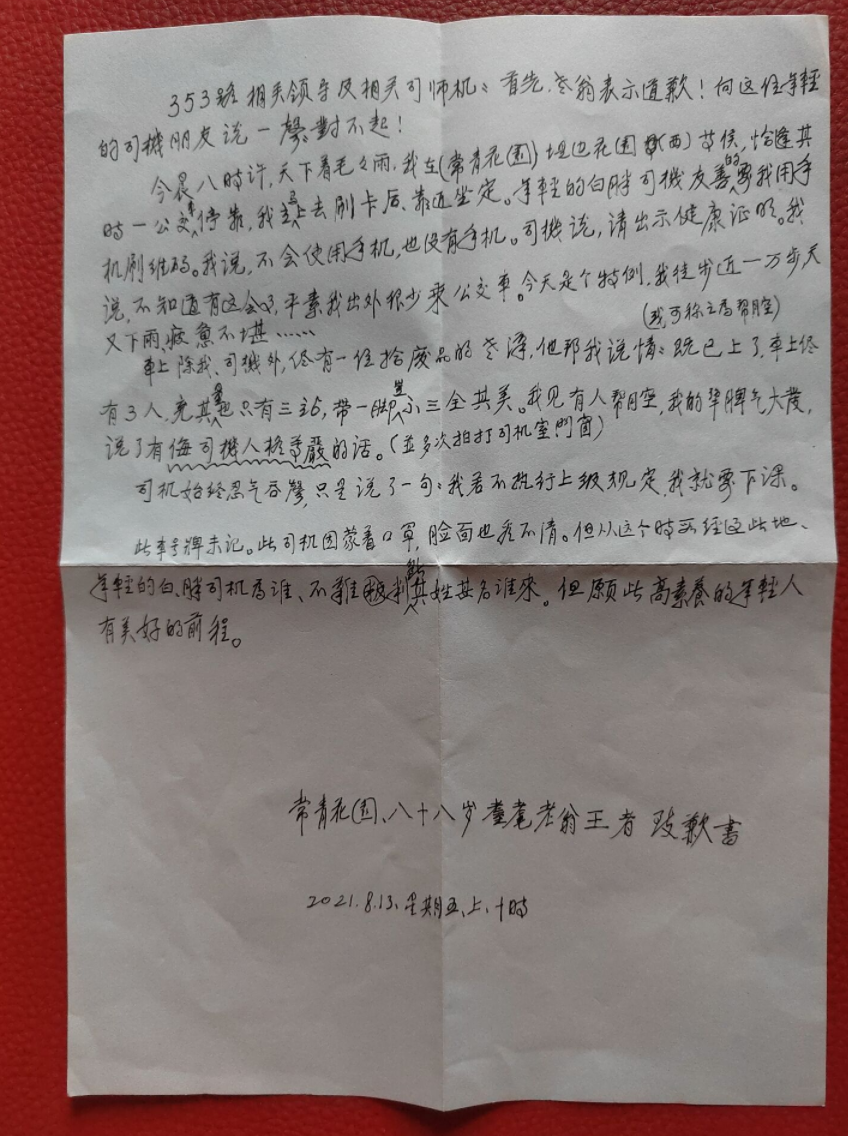 353路相关领导及相关司师机：首先，老翁表示道歉！向这位年轻
的司機朋友说一聲對不起！
今晨八時许，天下着毛々雨，我在(常青花园)坦边花园(西)苦侯，恰逢其
時一公交车停靠，我立马上去刷卡后、靠近坐定。年輕的白胖司機友善的要我用手
机刷维码。我说，不会使用手机，也没有手机。司機说，请出示健康证明。我
说，不知道有这会事，平素我出外很少乘公交車。今天是个特例，我徒步近一万步天
又下雨，疲惫不堪……
(或可称之為帮腔)
車上除我、司機外，仅有一位拾廢品的老漢，他帮我说情：既已上了，車上仅
有3人，充其量也只有三站，带一脚岂不三全其美。我见有人帮腔，我的犟脾气大發，
说了有侮司機人格尊嚴的话。(並多次拍打司机室門窗)
司机始终忍气吞聲，只是说了一句：我若不执行上级规定，我就要下课。
此车号牌未记。此司机因蒙着口罩，脸面也看不清。但从这个時间經过此地、
年輕的白、胖司机為谁、不難能判其姓甚名谁來。但願此高素養的年輕人
有美好的前程。
常青花园、八十八岁耄耋老翁王者 致歉書
2021.8.13、星期五、上、十時